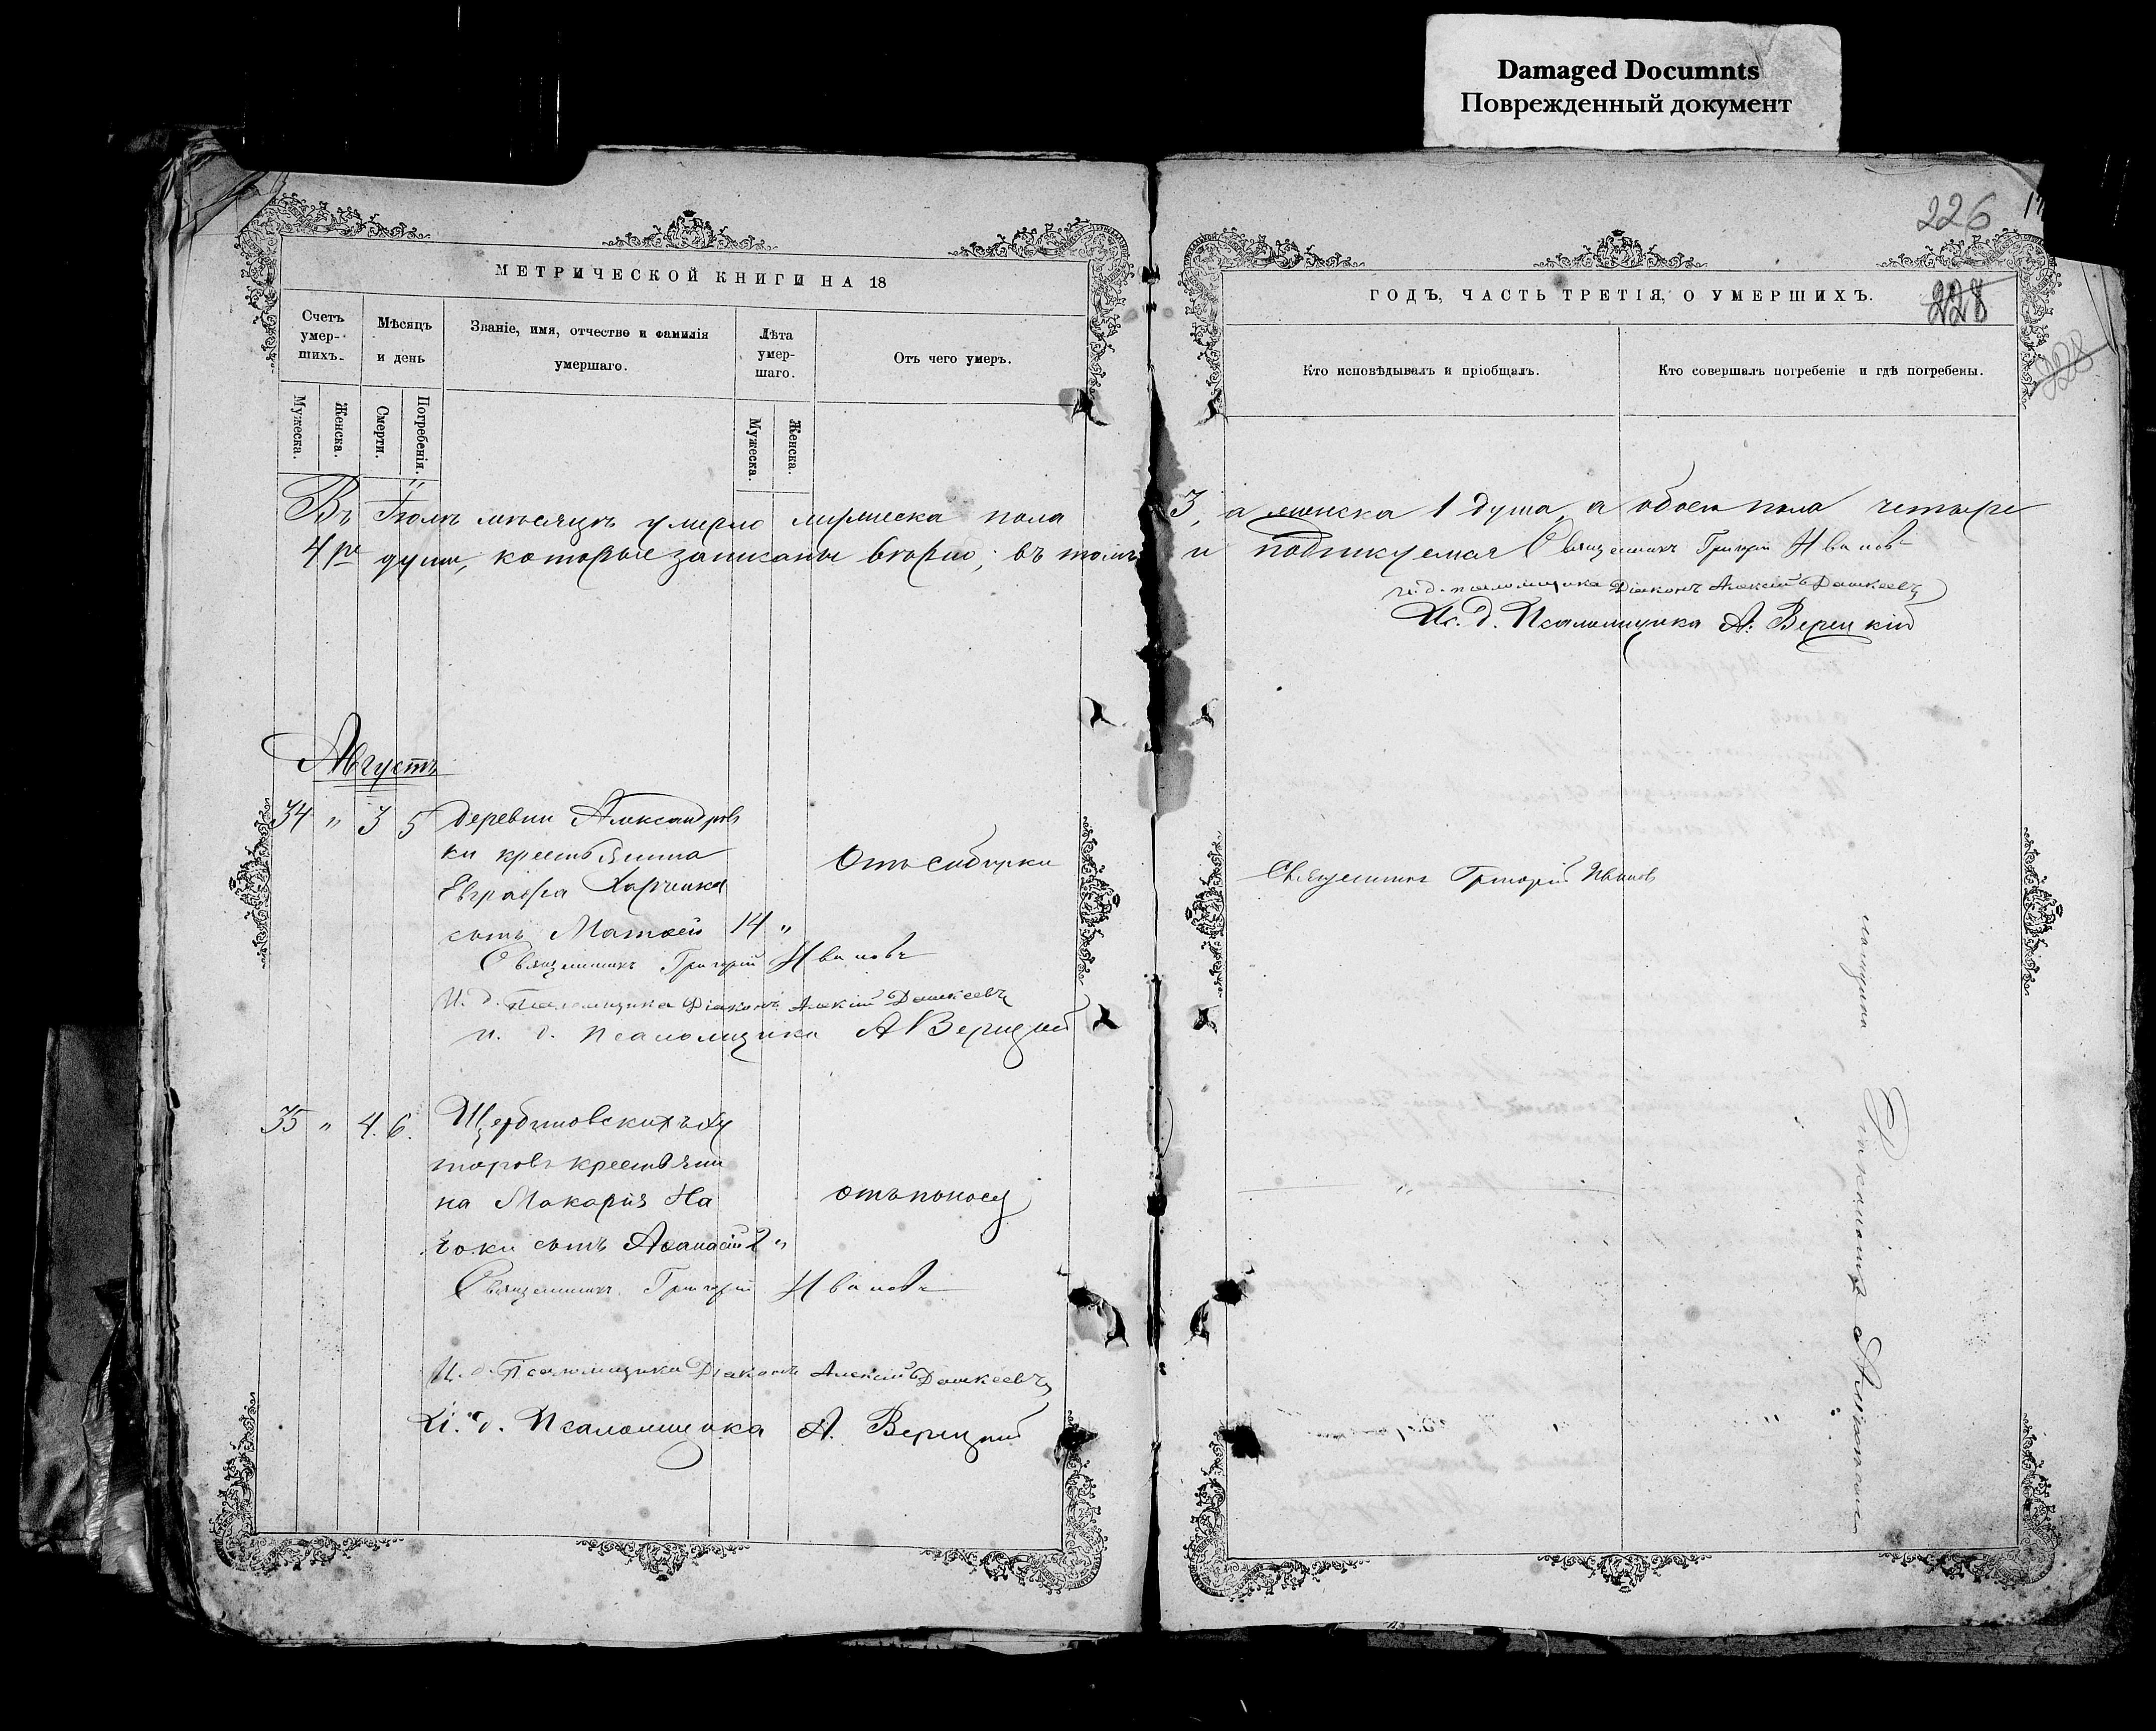 Damaged Documnts
Поврежденный документ
226
228
228
МЕТРИЧЕСКОЙ КНИГИ НА 18
Счетъ умер-шихъ.
Мѣсяцъ и день
Званіе, имя, отчество и фамилія умершаго.
Лѣта умер-шаго.
Отъ чего умеръ.
Мужеска.
Женска.
Смерти.
Погребенія.
Мужеска.
Женска.
ГОДЪ, ЧАСТЬ ТРЕТІЯ, О УМЕРШИХЪ.
Кто исповѣдывалъ и пріобщалъ.
Кто совершалъ погребеніе и гдѣ погребены.
Въ Іюлѣ мѣсяцѣ умерло мужеска пола 3, а женска 1 душа, а обоего пола четыре
4ре души, которые записаны вѣрно, въ томъ и подпикуемся Священникъ Григорій Ивановъ
И. д. псаломщика Діаконъ Алексій Дашкеевъ
И. д. Псаломщика А. Верецкій
Августъ
34 " 3 5 деревни Александров
ки крестьянина
Евграфа Харченка
сынъ Матвей 14 "
Отъ сибирки
Священникъ Григорій Иванов
Священникъ Григорій Ивановъ
И. д. Псаломщика Діаконъ Алексій Дашкеевъ
и. д. псаломщика А Верецкій
35 " 4. 6. Щербиновскихъ Ху
торовъ крестьяни
на Макарія На
боки сынъ Афанасій 2 "
отъ поноса
"
Священникъ Григорій Ивановъ
И. д. Псаломщика Діаконъ Алексій Дашкеевъ
И. д. Псаломщика А. Верецкій